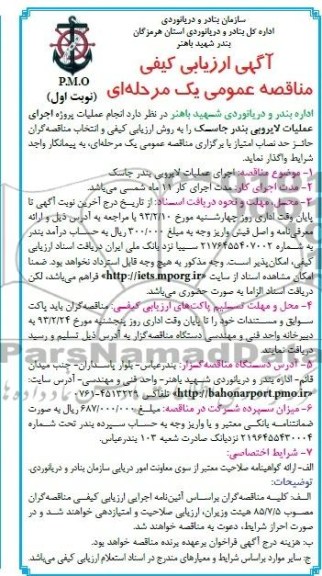 سازمان بنادر و دریانوردی
اداره کل بنادر و دریانوردی استان هرمزگان
بندر شهید باهنر
آگهی ارزیابی کیفی
مناقصه عمومی یک مرحله‌ای
P.M.O
(نوبت اول)
اداره بندر و دریانوردی شهید باهنر در نظر دارد انجام عملیات پروژه اجرای
عملیات لایروبی بندر جاسک را به روش ارزیابی کیفی و انتخاب مناقصه‌گران
حائز حد نصاب امتیاز با برگزاری مناقصه عمومی یک مرحله‌ای، به پیمانکار واجد
شرایط واگذار نماید.
۱- موضوع مناقصه: اجرای عملیات لایروبی بندر جاسک
۲- مدت اجرای کار: مدت اجرای کار ۱۱ ماه شمسی می‌باشد.
۳- محل، مهلت و نحوه دریافت اسناد: از تاریخ درج آخرین نوبت آگهی تا
پایان وقت اداری روز چهارشنبه مورخ ۹۳/۲/۱۰ با مراجعه به آدرس ذیل و ارائه
معرفی‌نامه و اصل فیش واریز وجه به مبلغ ۳۰۰/۰۰۰ ریال به حساب درآمد بندر
به شماره ۲۱۷۶۴۵۵۴۰۷۰۰۲ سیبا نزد بانک ملی ایران دریافت اسناد ارزیابی
کیفی، امکان‌پذیر است. وجه مذکور به هیچ وجه قابل استرداد نخواهد بود. ضمنا
امکان مشاهده اسناد از سایت «http://iets.mporg.ir» فراهم می‌باشد، لکن
دریافت اسناد الزاما به صورت حضوری می‌باشد.
۴- محل و مهلت تسلیم پاکت‌های ارزیابی کیفی: مناقصه‌گران باید پاکت
سوابق و مستندات خود را تا پایان وقت اداری روز پنجشنبه مورخ ۹۳/۲/۲۴ به
دبیرخانه واحد فنی و مهندسی دستگاه مناقصه‌گزار به آدرس ذیل تسلیم و رسید
دریافت نمایند
۵- آدرس دستگاه مناقصه‌گزار: بندرعباس- بلوار پاسداران- جنب میدان
قائم- اداره بندر و دریانوردی شهید باهنر- واحد فنی و مهندسی- آدرس سایت:
«http://bahonarport.pmo.ir» تلفاکس ۴۵۱۳۲۲۹-۰۷۶۱
۶- میزان سپرده شرکت در مناقصه: مبلغ ۶۸۷/۰۰۰/۰۰۰ ریال به صورت
ضمانتنامه بانکی معتبر و یا واریز وجه به حساب سپرده بندر تحت شماره
۲۱۹۶۴۵۵۴۳۰۰۰۴ نزدبانک صادرات شعبه ۱۰۳ بندرعباس.
۷- شرایط اختصاصی:
الف- ارائه گواهینامه صلاحیت معتبر از سوی معاونت امور دریایی سازمان بنادر و دریانوردی.
توضیحات:
الف: کلیه مناقصه‌گران براساس آئین‌نامه اجرایی ارزیابی کیفی مناقصه‌گران
مصوب ۸۵/۷/۵ هیئت وزیران، ارزیابی صلاحیت و امتیازدهی خواهند شد و در
صورت احراز شرایط، دعوت به مناقصه خواهند شد.
ب: هزینه درج آگهی فراخوان برعهده برنده مناقصه خواهد بود.
ج: سایر موارد براساس شرایط و معیارهای مندرج در اسناد استعلام ارزیابی کیفی می‌باشد.